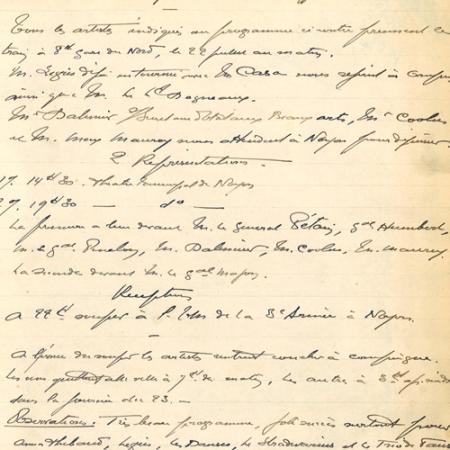 Tous les artistes indiqués au programme ci contre prennent le
train à 8h gare du Nord, le 22 juillet au matin.
M. Legin déjà en tournée avec M. Casa nous rejoint à Compiègne
ainsi que M. le Lt Bagneaux.
Mr Dalimier Sous Secrétaire d'Etat aux Beaux arts, Mr Coolus
et M. Max Maurey nous attendent à Noyon pour déjeuner.
2 Representations.
14h30. Theatre Municipal de Noyon
19h30 — do —
La première a lieu devant M. le general Pétain, gal Humbert,
M. le gal, M. Dalimier, M. Coolus, M. Maurey.
La seconde devant M. le gal
Reception
A 22h souper à l'E.M. de la 3e Armée à Noyon.
A l'issue du souper les artistes rentrent coucher à Compiègne.
Les uns quittent la ville à 7h du matin, les autres à
dans la journée du 23. —
Observations: Très beau programme, joli succès surtout pour
Anna Thibaud, Legin, les Danses, le Stradivarius et le Trio de